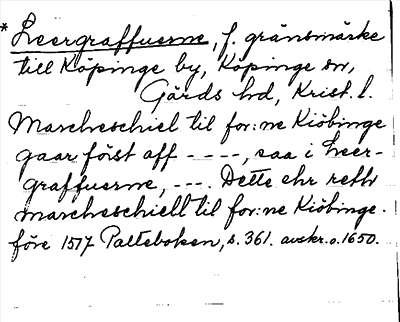 * Leergraffuerne, f. gränsmärke
till Köpinge by, Köpinge sn,
Gärds hd, Krist. l.
Marcheschiel til for:ne Kiöbinge
gaar först aff - - - -, saa i Leer-
graffuerne, - - -. Dette ehr rettw
marcheschiell til for:ne Kiöbinge.
före 1517 Palteboken, s. 361. avskr. o. 1650.